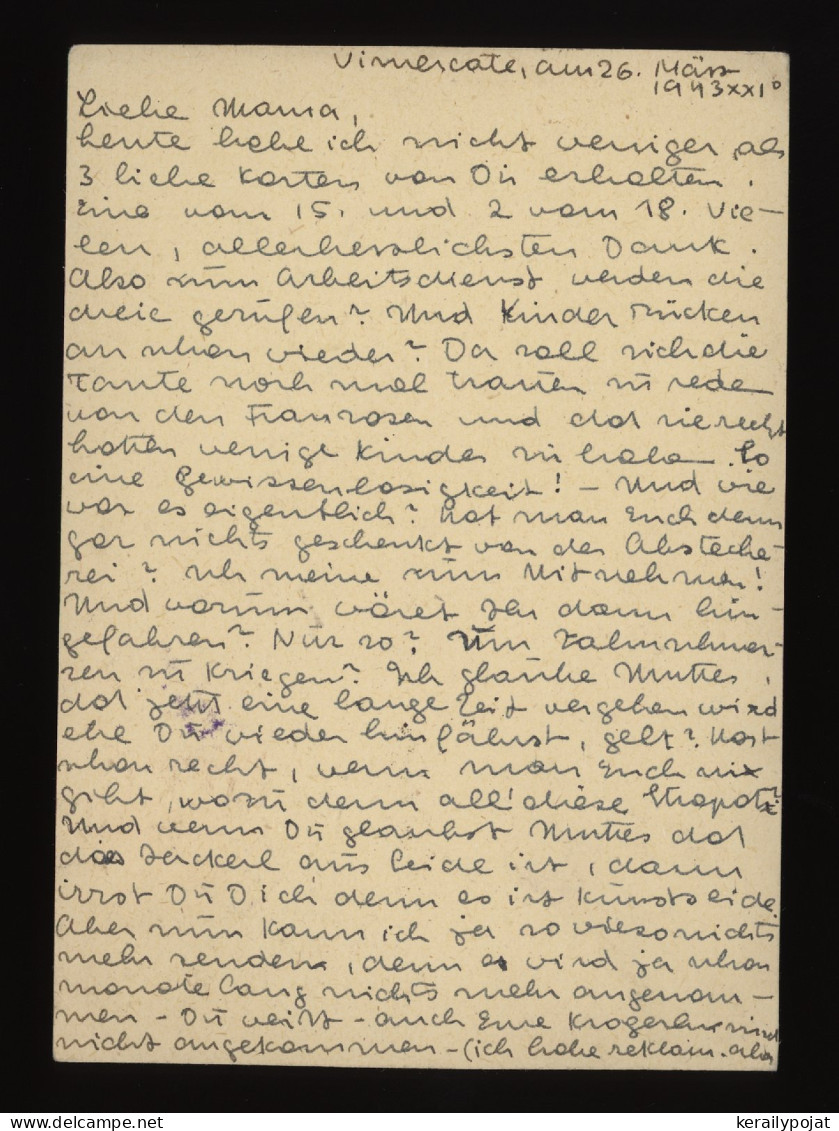 Vimercate, am 26. März
1943 XXI°
Liebe Mama,
heute habe ich nicht weniger als
3 liebe Karten von Dir erhalten.
Eine vom 15. und 2 vom 18. Vie-
len, allerherzlichsten Dank.
Also zum Arbeitsdienst werden die
gerufen? Und Kinder rücken
an schon wieder? Da soll sich die
Tante noch mal trauen zu reden
von den Franzosen und daß sie recht
hatten wenige Kinder zu haben. So
eine Gewissenlosigkeit! - Und wie
war es eigentlich? Hat man Euch denn
gar nichts geschenkt von der Absteche-
rei? Ich meine zum Mitnehmen!
Und warum wäret Ihr dann hin-
gefahren? Nur so? Um Zahnschmer-
zen zu kriegen? Ich glaube Mutter,
daß jetzt eine lange Zeit vergehen wird
ehe Du wieder hinfährst, gelt? Hast
schon recht, wenn man Euch nix
gibt, wozu denn all' diese Strapatz?
Und wenn Du glaubst Mutter daß
das Jackerl aus Seide ist, dann
irrst Du Dich denn es ist Kunstseide.
Aber nun kann ich ja sowieso nichts
mehr senden, denn es wird ja schon
monate lang nichts mehr angenom-
men - Du weißt - auch Eure
nicht angekommen - (ich habe reklam. aber
www.delcampe.net
kerailypojat